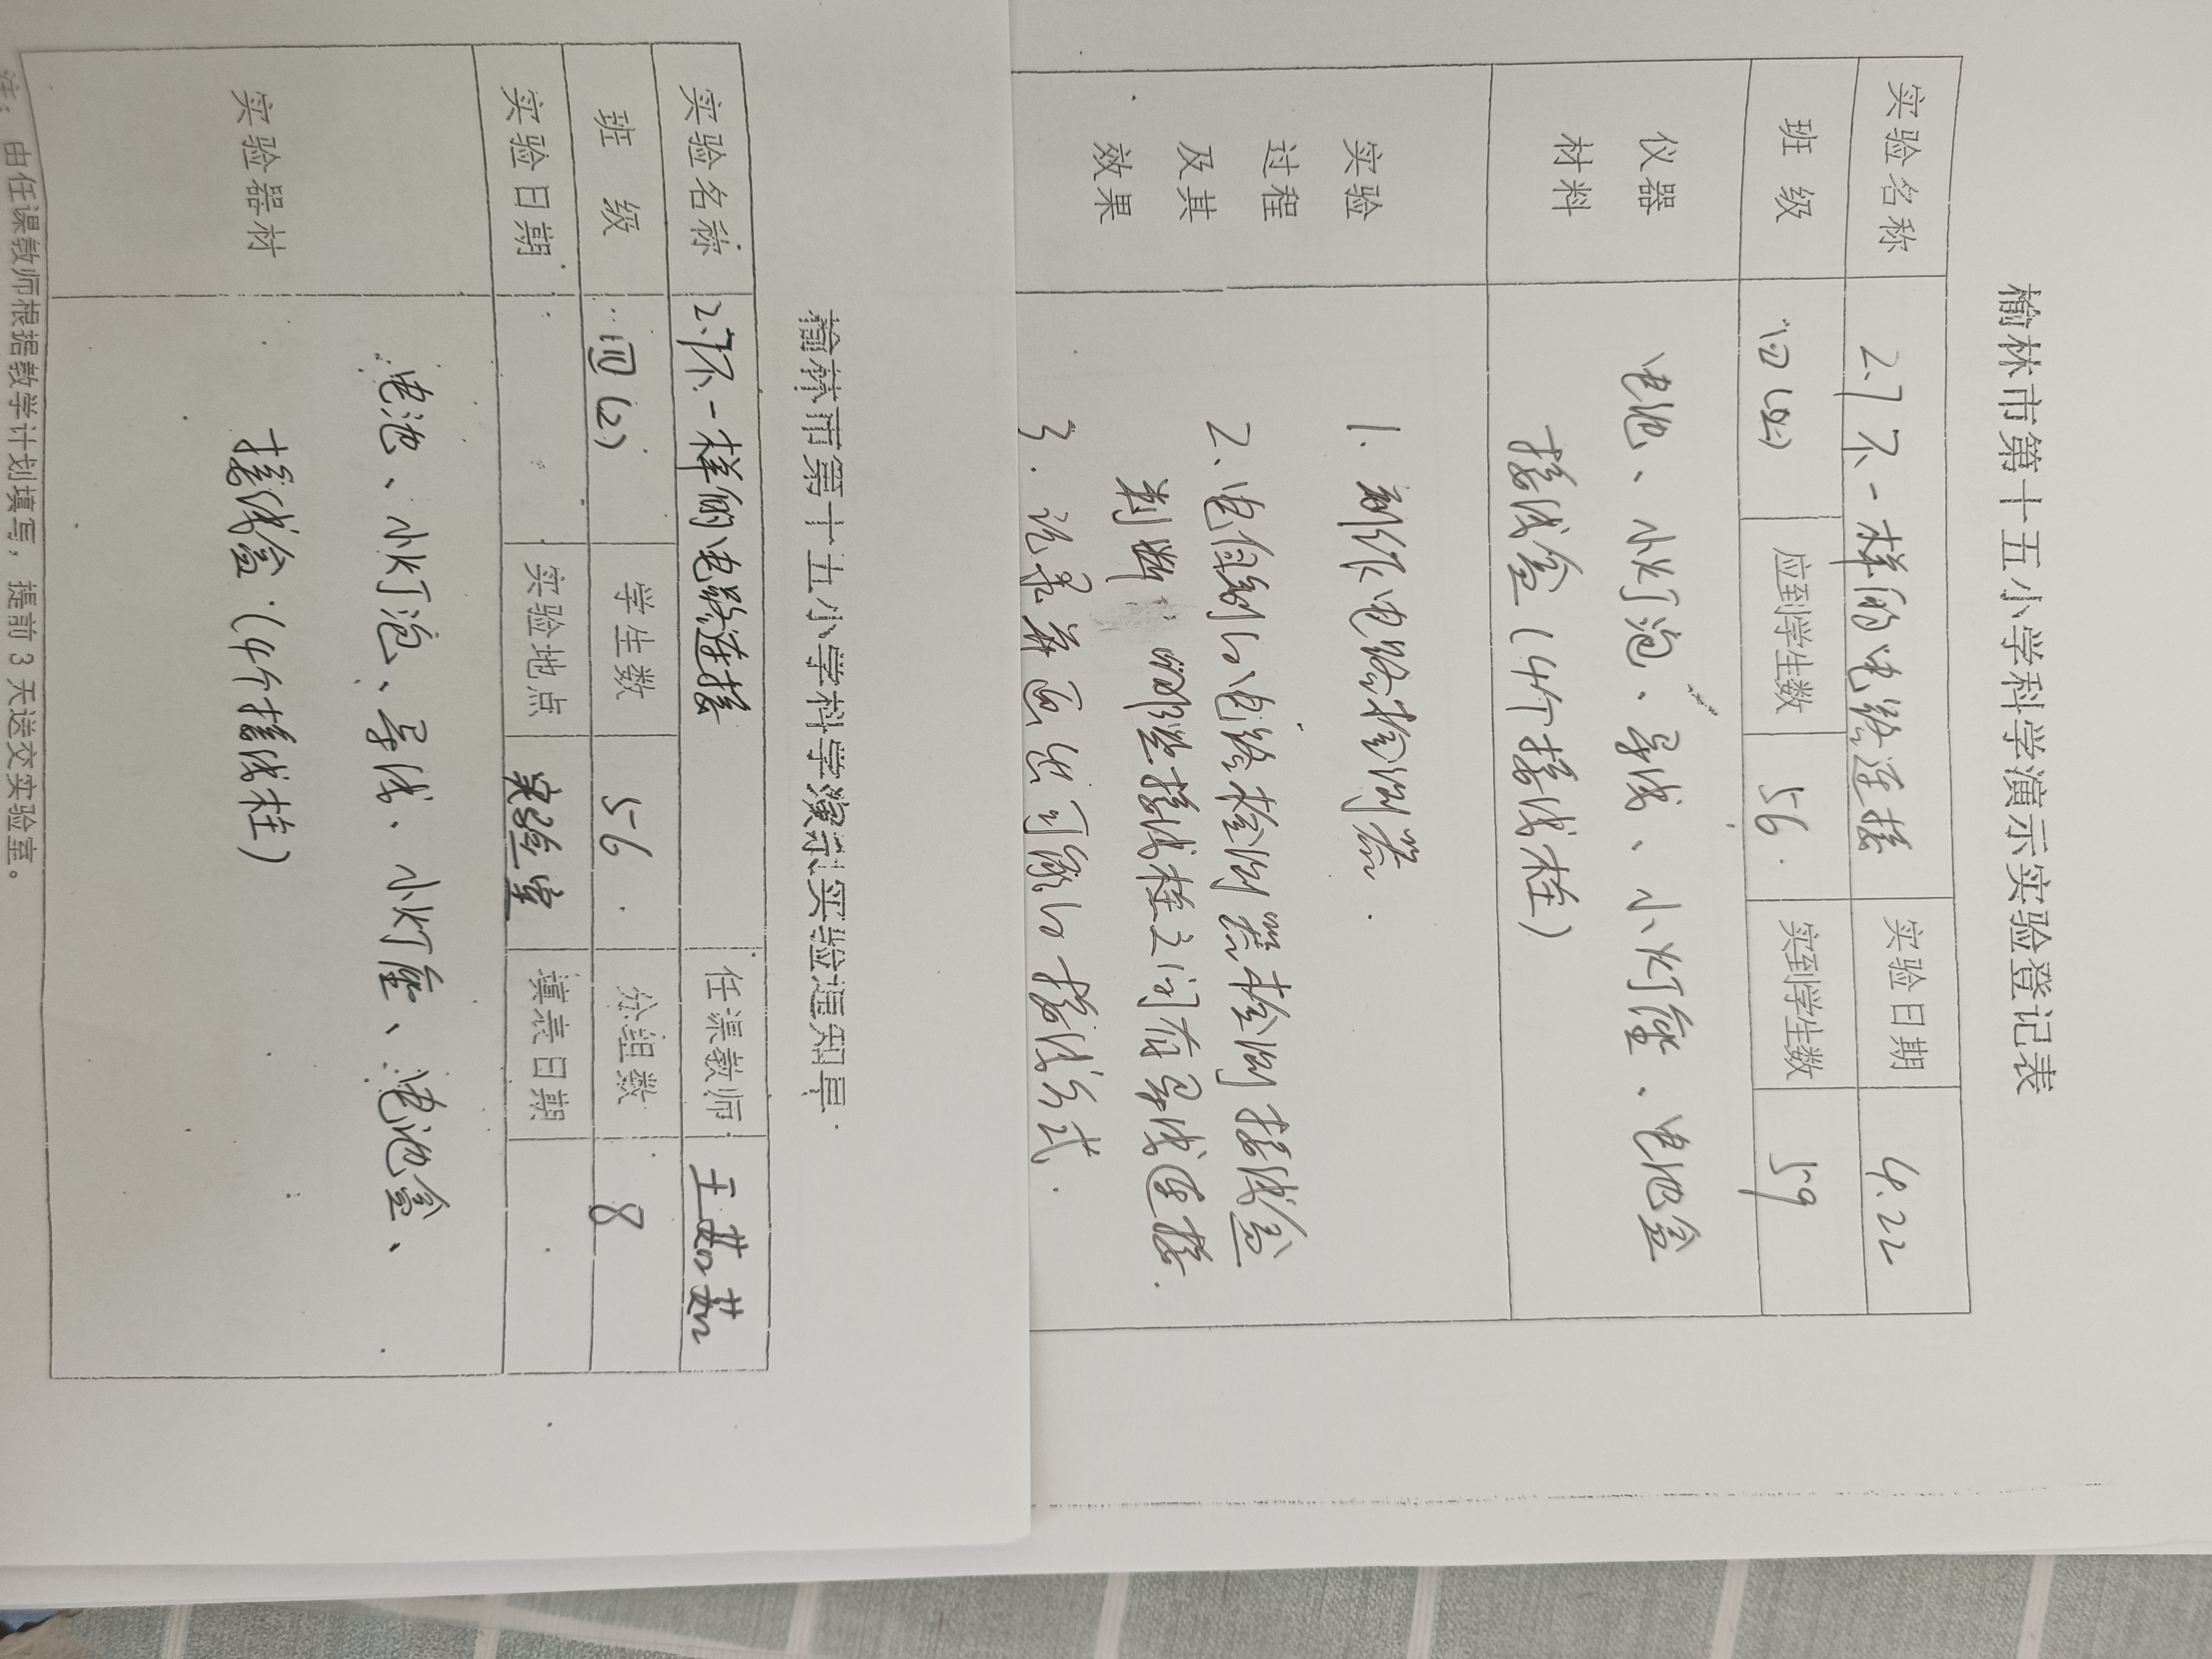 榆林市第十五小学科学演示实验登记表
实验名称 2.7不一样的电路连接 实验日期 4.22
班 级 四 应到学生数 56 实到学生数 59
仪器 电池、小灯泡、导线、小灯座、电池盒
材料 接线盒(4个接线柱)
实验 1. 制作电路检测器.
过程 2. 电路检测器检测接线盒
及其 判断 哪些接线柱之间有导线连接.
效果 3. 记录并画出可能的接线方式.
榆林市第十五小学科学演示实验通知单
实验名称 2.7不一样的电路连接 任课教师 王茹茹
班 级 四(2) 学生数 56 分组数 8
实验日期 实验地点 实验室 填表日期
实验器材 电池、小灯泡、导线、小灯座、电池盒、
接线盒(4个接线柱)
注：由任课教师根据教学计划填写，提前3天送交实验室。